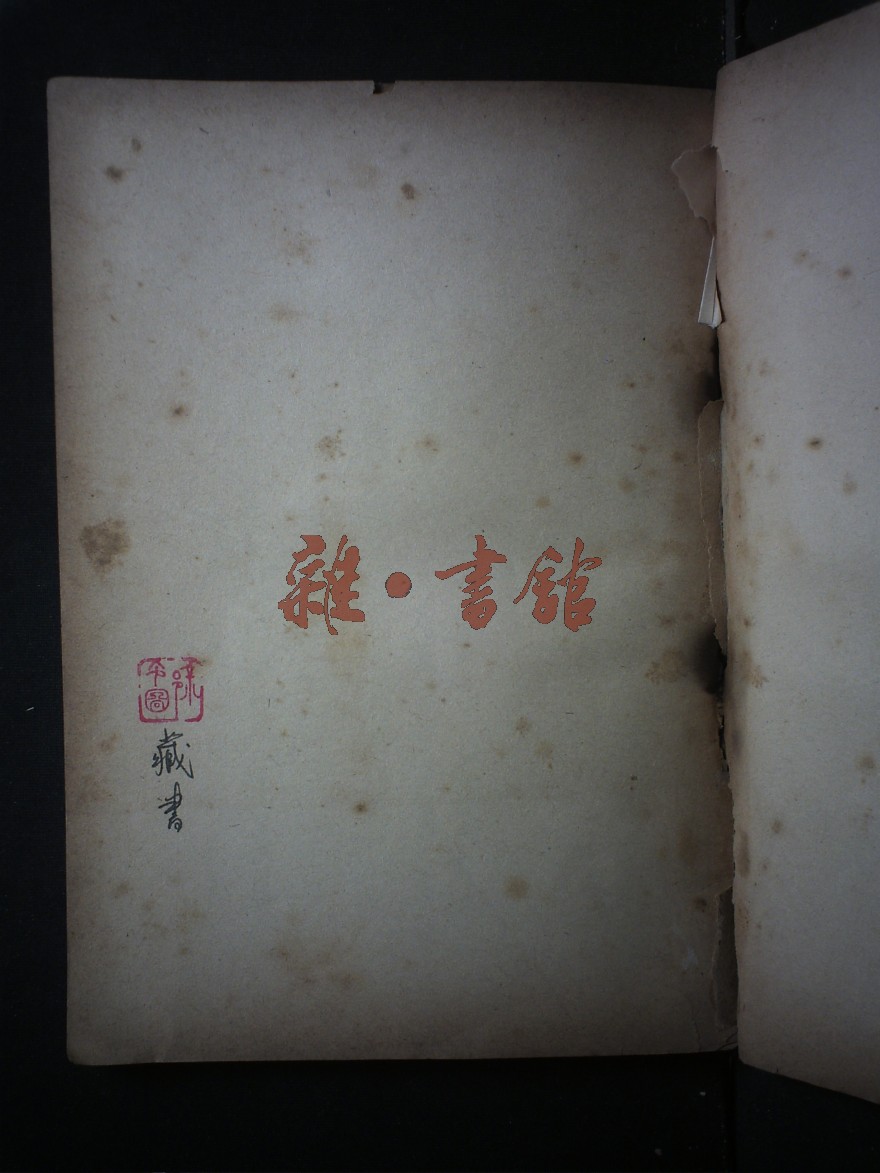 雜●書館
圖
藏書